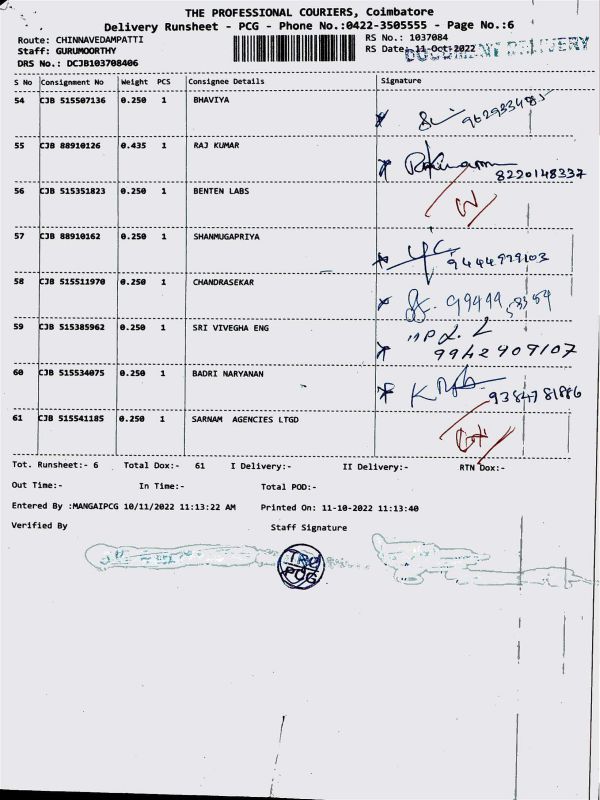 THE PROFESSIONAL COURIERS, Coimbatore
Delivery Runsheet - PCG - Phone No.:0422-3505555 - Page No.:6
Route: CHINNAVEDAMPATTI
Staff: GURUMOORTHY
DRS No.: DCJB103708406
RS No.: 1037084
RS Date: 11-Oct-2022
DOCUMENT DELIVERY
S No Consignment No Weight PCS Consignee Details Signature
54 CJB 515507136 0.250 1 BHAVIYA
55 CJB 88910126 0.435 1 RAJ KUMAR
8220148337
56 CJB 515351823 0.250 1 BENTEN LABS
57 CJB 88910162 0.250 1 SHANMUGAPRIYA
9444979103
58 CJB 515511970 0.250 1 CHANDRASEKAR
59 CJB 515385962 0.250 1 SRI VIVEGHA ENG
9942909107
60 CJB 515534075 0.250 1 BADRI NARYANAN
9384781886
61 CJB 515541185 0.250 1 SARNAM AGENCIES LTGD
Tot. Runsheet:- 6 Total Dox:- 61 I Delivery:- II Delivery:- RTN Dox:-
Out Time:- In Time:- Total POD:-
Entered By :MANGAIPCG 10/11/2022 11:13:22 AM Printed On: 11-10-2022 11:13:40
Verified By Staff Signature
TRO
PCG